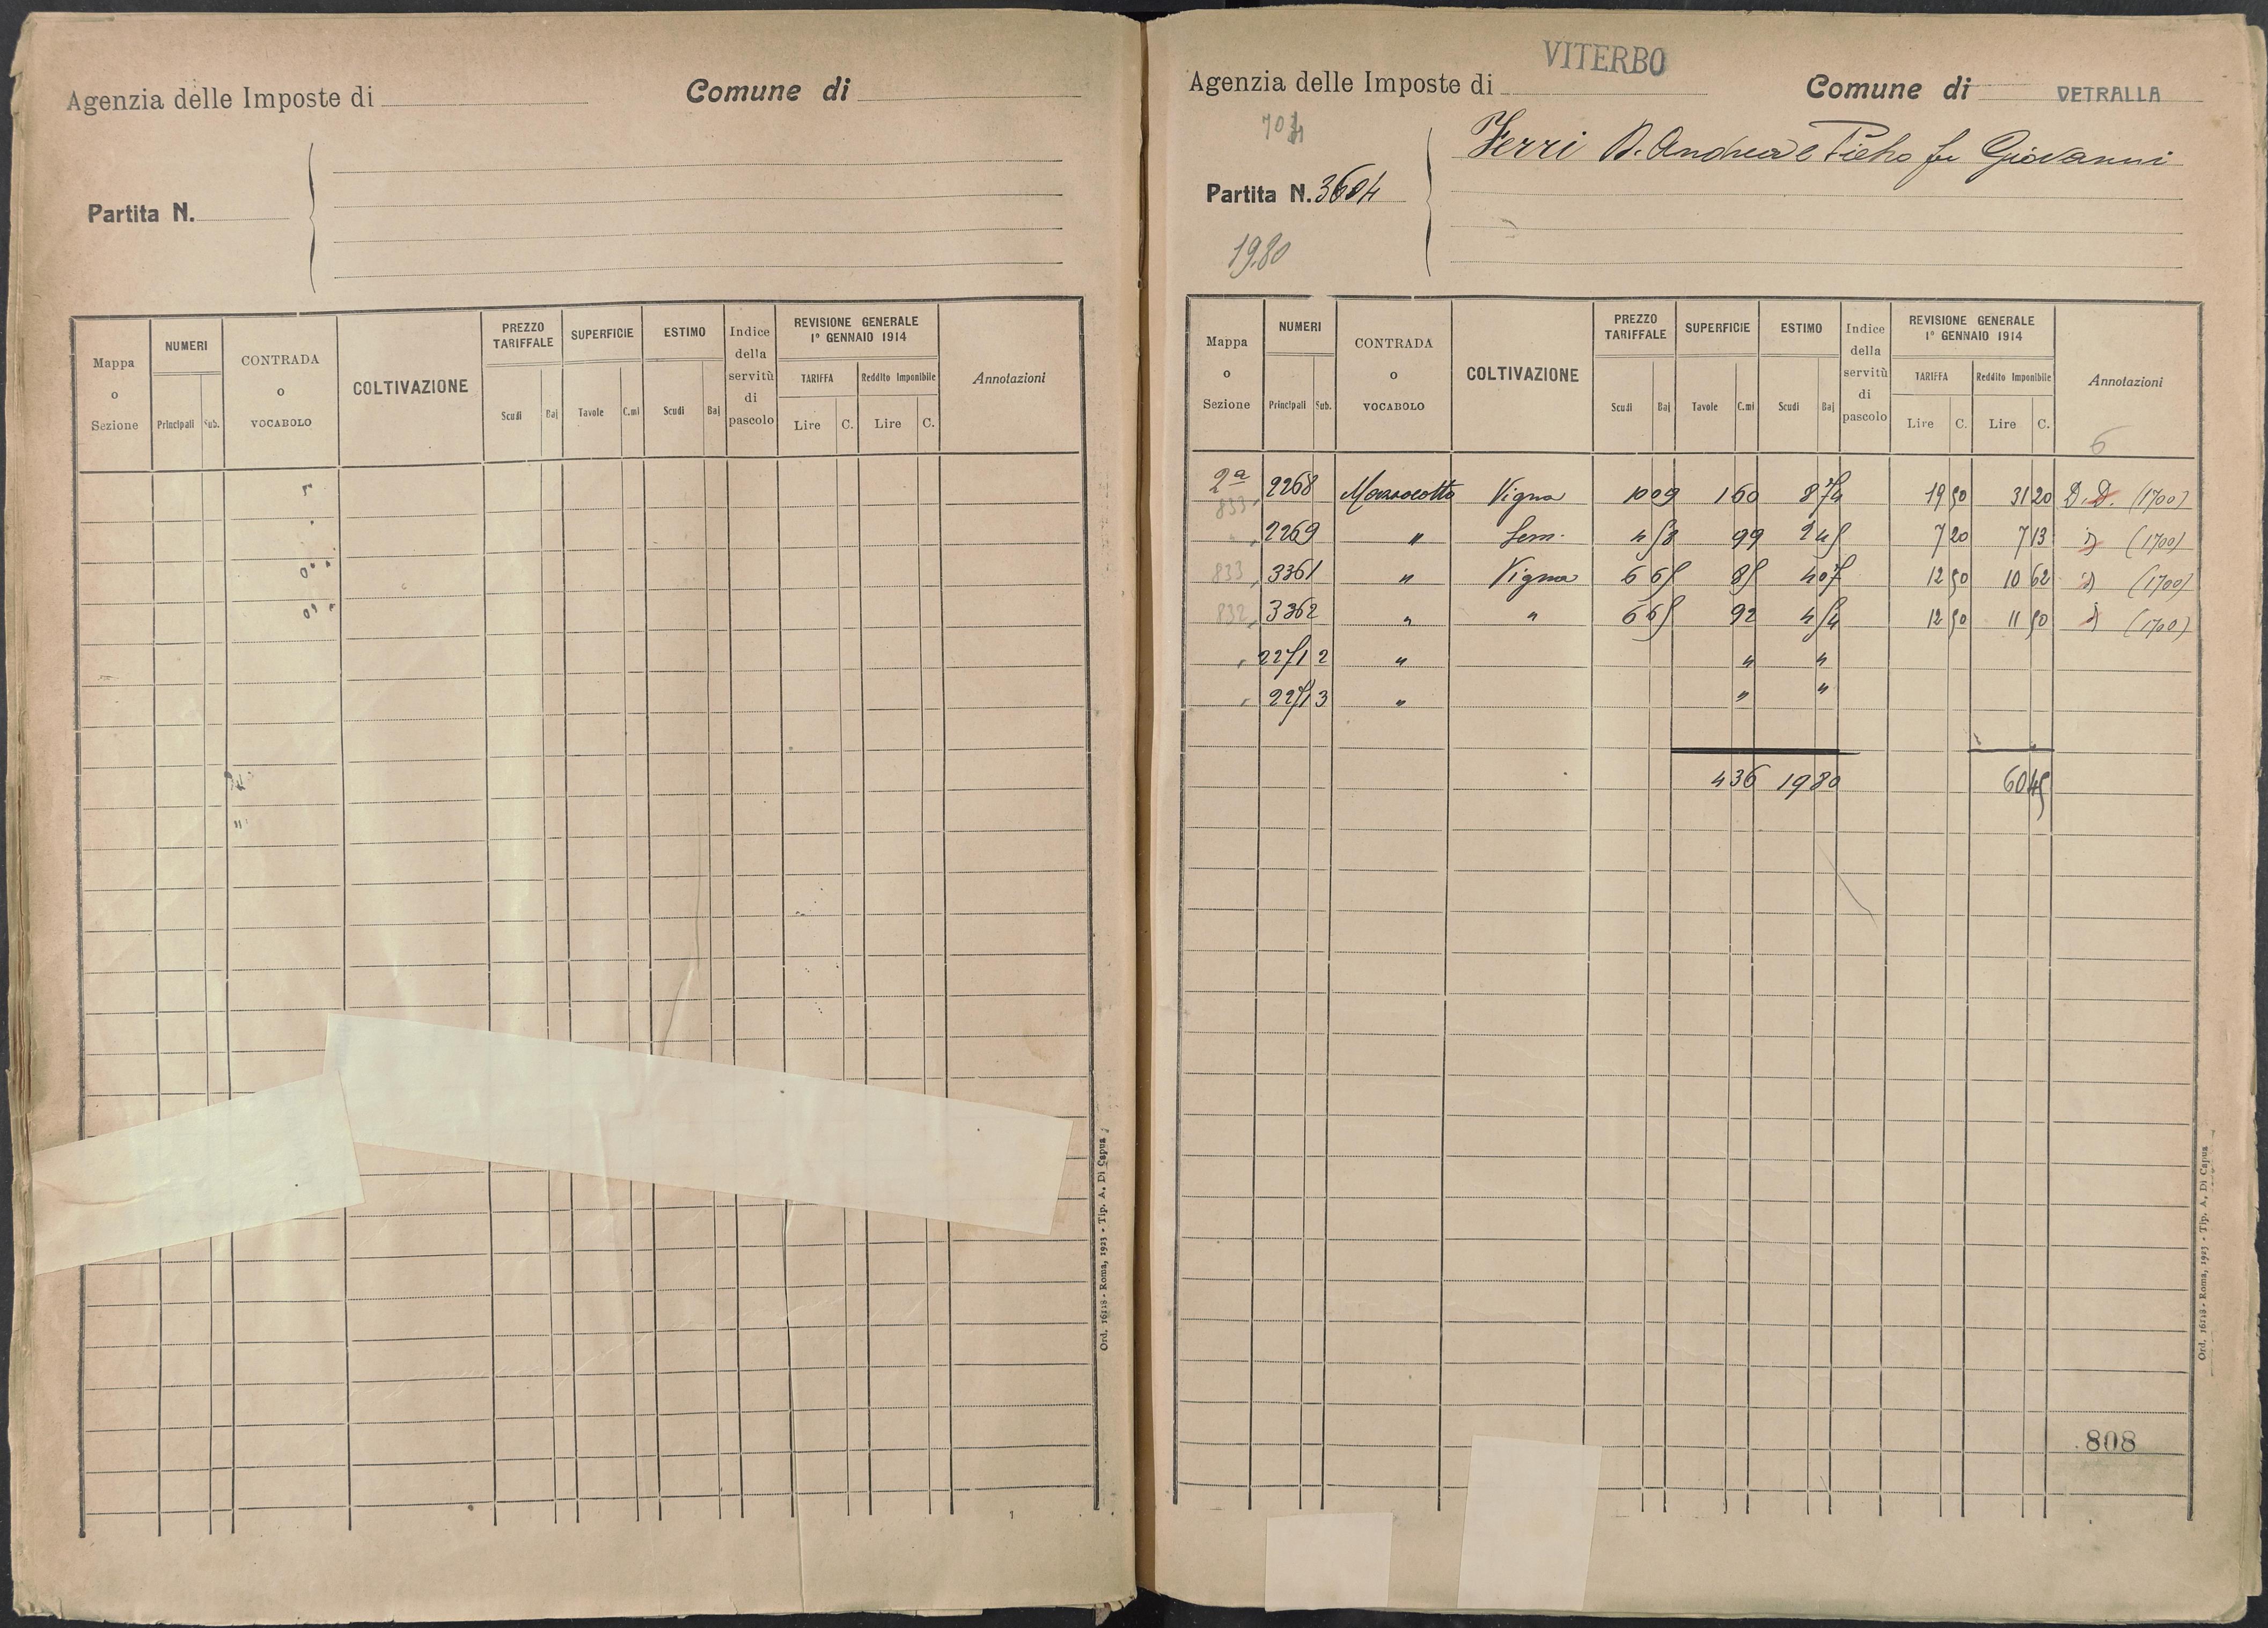 Agenzia delle Imposte di
Comune di
Partita N.
Mappa o Sezione
NUMERI
Principali Sub.
CONTRADA o VOCABOLO
COLTIVAZIONE
PREZZO TARIFFALE
Scudi Baj
SUPERFICIE
Tavole C.mi
ESTIMO
Scudi Baj
Indice della servitù di pascolo
REVISIONE GENERALE
1° GENNAIO 1914
TARIFFA
Lire C.
Reddito Imponibile
Lire C.
Annotazioni
Ord. 16118 - Roma, 1923 - Tip. A. Di Capua
VITERBO
Agenzia delle Imposte di
Comune di VETRALLA
704
Ferri D. Andrea e Pietro fu Giovanni
Partita N. 3604
1980
Mappa o Sezione
NUMERI
Principali Sub.
CONTRADA o VOCABOLO
COLTIVAZIONE
PREZZO TARIFFALE
Scudi Baj
SUPERFICIE
Tavole C.mi
ESTIMO
Scudi Baj
Indice della servitù di pascolo
REVISIONE GENERALE
1° GENNAIO 1914
TARIFFA
Lire C.
Reddito Imponibile
Lire C.
Annotazioni
6
2a 2268 Vigna 10 09 1 60 8 74 19 50 31 20 D.D. (1700)
833
" 2269 " Sem. 4 58 99 2 45 7 20 7 13 (1700)
833 " 3361 " Vigna 6 65 85 4 07 12 50 10 62 (1700)
832 " 3362 " " 6 65 92 4 54 12 50 11 50 (1700)
" 2271 2 " " "
" 2271 3 " " "
4 36 19 80 60 45
808
Ord. 16118 - Roma, 1923 - Tip. A. Di Capua